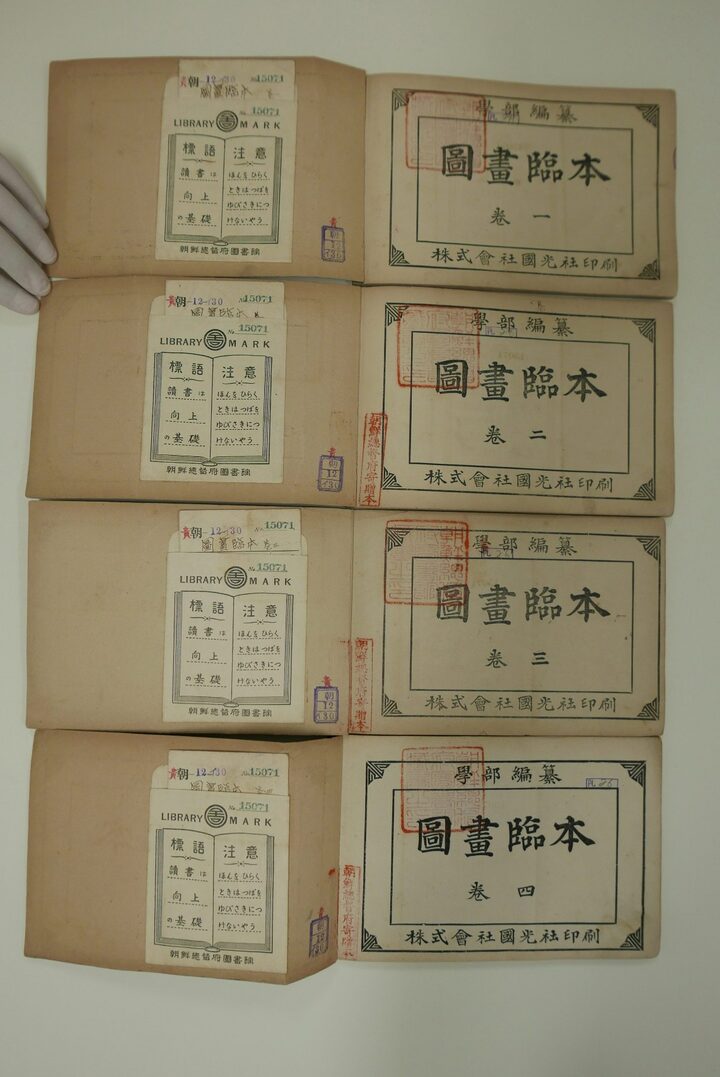 貴朝-12-/30 No 15071
圖畫臨本
No 15071
LIBRARY MARK
標語
讀書は
向上
の基礎
注意
ほんをひらく
ときはつばを
ゆびさきにつ
けないやう
朝鮮總督府圖書館
貴
朝
12
130
學部編纂
圖畫臨本
卷一
株式會社國光社印刷
貴朝-12-/30 No 15071
圖畫臨本
No 15071
LIBRARY MARK
標語
讀書は
向上
の基礎
注意
ほんをひらく
ときはつばを
ゆびさきにつ
けないやう
朝鮮總督府圖書館
貴
朝
12
130
朝鮮總督府寄贈本
學部編纂
圖畫臨本
卷二
株式會社國光社印刷
貴朝-12-/30 No 15071
圖畫臨本
No 15071
LIBRARY MARK
標語
讀書は
向上
の基礎
注意
ほんをひらく
ときはつばを
ゆびさきにつ
けないやう
朝鮮總督府圖書館
貴
朝
12
130
朝鮮總督府寄贈本
學部編纂
圖畫臨本
卷三
株式會社國光社印刷
貴朝-12-/30 No 15071
圖畫臨本
No 15071
LIBRARY MARK
標語
讀書は
向上
の基礎
注意
ほんをひらく
ときはつばを
ゆびさきにつ
けないやう
朝鮮總督府圖書館
貴
朝
12
130
朝鮮總督府寄贈本
學部編纂
圖畫臨本
卷四
株式會社國光社印刷